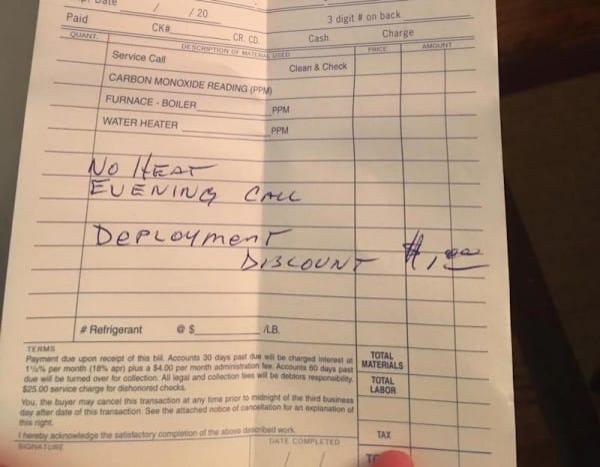 Date / / 20
3 digit # on back
Paid CK# CR. CD. Cash Charge
QUANT. DESCRIPTION OF MATERIAL USED PRICE AMOUNT
Service Call Clean & Check
CARBON MONOXIDE READING (PPM)
FURNACE - BOILER PPM
WATER HEATER PPM
NO HEAT
EVENING CALL
DEPLOYMENT
DISCOUNT $1.00
# Refrigerant @ $ /LB.
TERMS
Payment due upon receipt of this bill. Accounts 30 days past due will be charged interest at
1½% per month (18% apr) plus a $4.00 per month administration fee. Accounts 60 days past
due will be turned over for collection. All legal and collection fees will be debtors responsibility.
$25.00 service charge for dishonored checks.
You, the buyer may cancel this transaction at any time prior to midnight of the third business
day after date of this transaction. See the attached notice of cancellation for an explanation of
this right.
I hereby acknowledge the satisfactory completion of the above described work.
SIGNATURE DATE COMPLETED
/ /
TOTAL
MATERIALS
TOTAL
LABOR
TAX